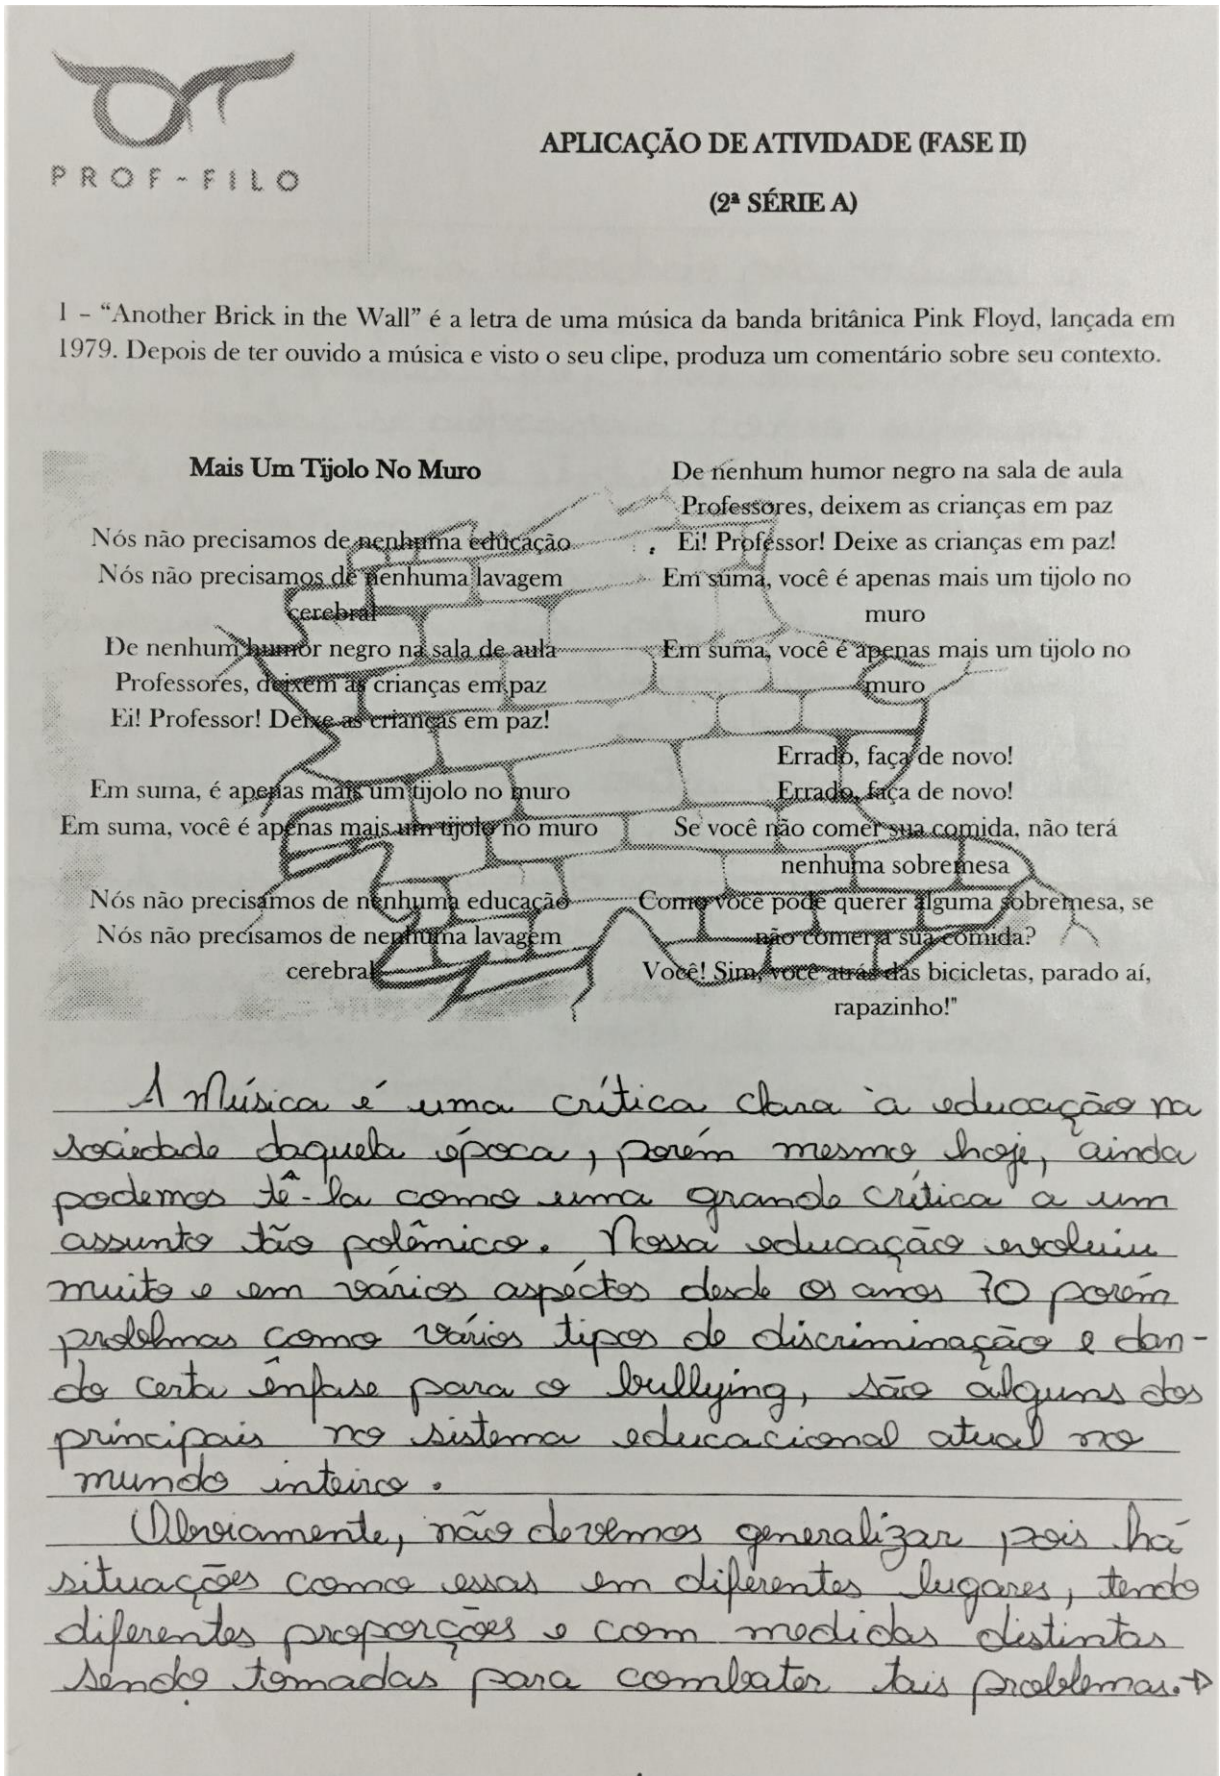 PROF-FILO
APLICAÇÃO DE ATIVIDADE (FASE II)
(2ª SÉRIE A)
1 – “Another Brick in the Wall” é a letra de uma música da banda britânica Pink Floyd, lançada em
1979. Depois de ter ouvido a música e visto o seu clipe, produza um comentário sobre seu contexto.
Mais Um Tijolo No Muro
Nós não precisamos de nenhuma educação
Nós não precisamos de nenhuma lavagem
cerebral
De nenhum humor negro na sala de aula
Professores, deixem as crianças em paz
Ei! Professor! Deixe as crianças em paz!
Em suma, é apenas mais um tijolo no muro
Em suma, você é apenas mais um tijolo no muro
Nós não precisamos de nenhuma educação
Nós não precisamos de nenhuma lavagem
cerebral
De nenhum humor negro na sala de aula
Professores, deixem as crianças em paz
Ei! Professor! Deixe as crianças em paz!
Em suma, você é apenas mais um tijolo no
muro
Em suma, você é apenas mais um tijolo no
muro
Errado, faça de novo!
Errado, faça de novo!
Se você não comer sua comida, não terá
nenhuma sobremesa
Como você pode querer alguma sobremesa, se
não comer a sua comida?
Você! Sim, você atrás das bicicletas, parado aí,
rapazinho!"
A Música é uma crítica clara à educação na
sociedade daquela época, porém mesmo hoje, ainda
podemos tê-la como uma grande crítica a um
assunto tão polêmico. Nossa educação evoluiu
muito e em vários aspéctos desde os anos 70 porém
problmas como vários tipos de discriminação e dan-
do certa ênfase para o bullying, são alguns dos
principais no sistema educacional atual no
mundo inteiro.
Obviamente, não devemos generalizar pois há
situações como essas em diferentes lugares, tendo
diferentes proporções e com medidas distintas
sendo tomadas para combater tais problemas.→